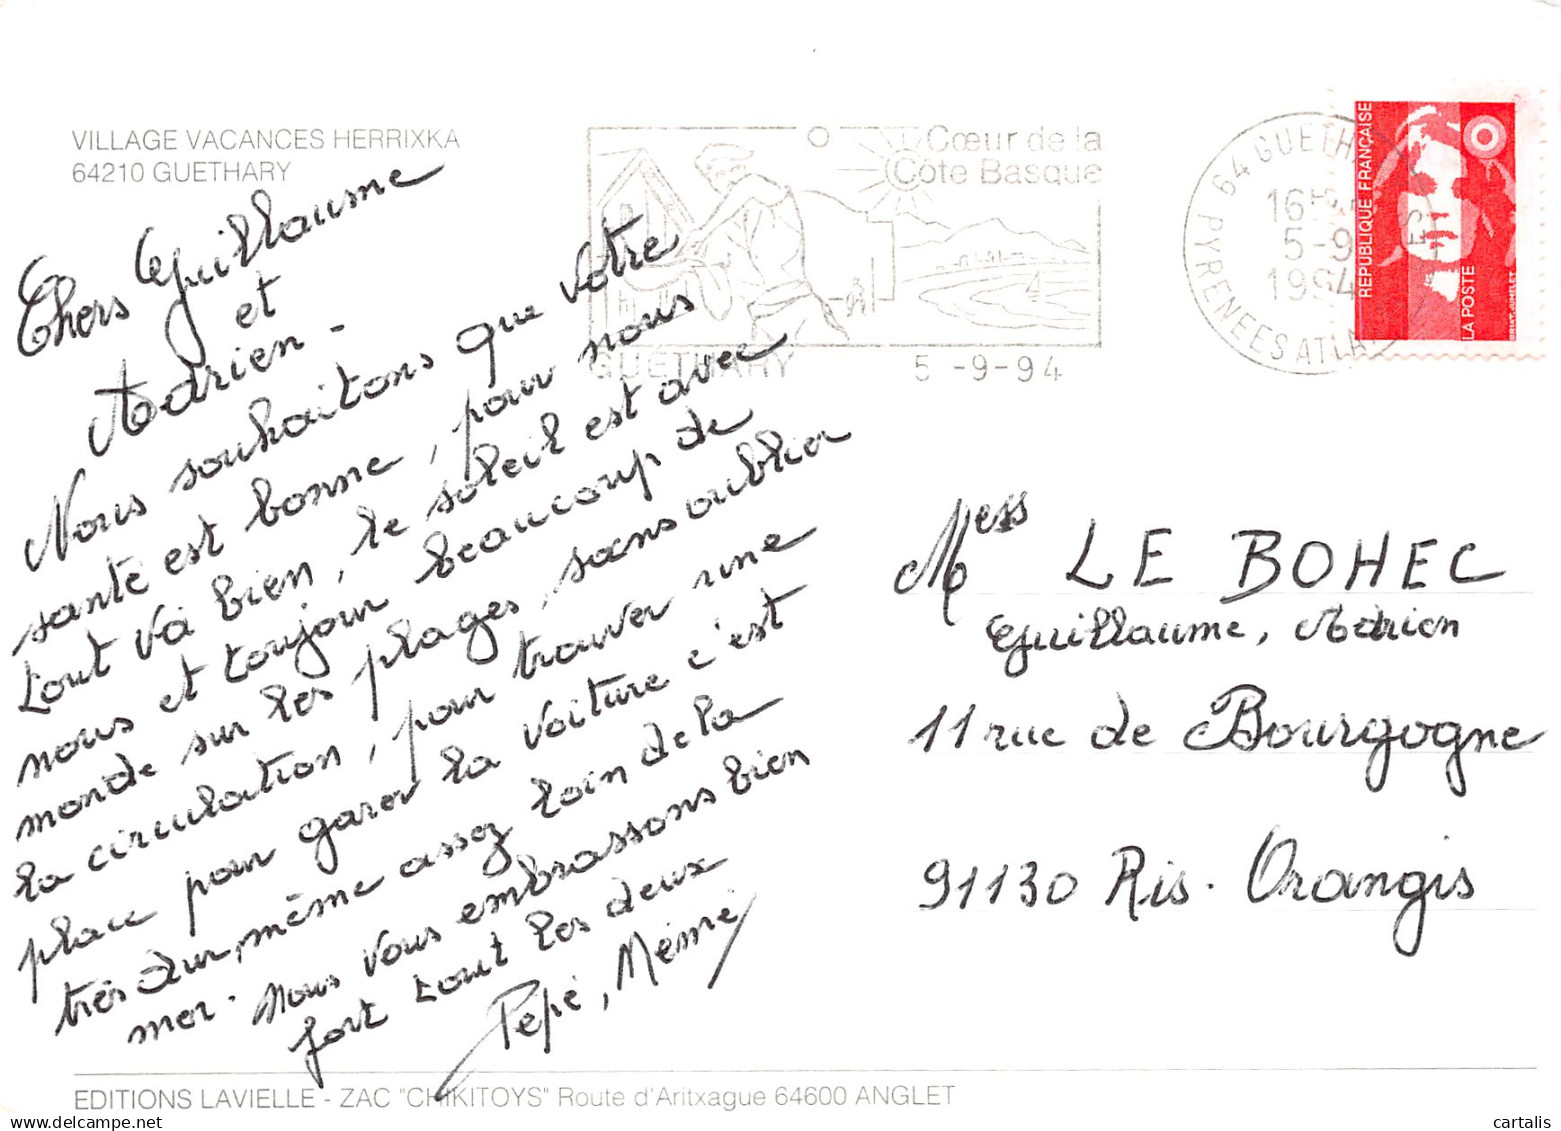 VILLAGE VACANCES HERRIXKA
64210 GUETHARY
Cœur de la
Côte Basque
GUETHARY 5 -9-94
64 GUETH
16
5 -9
1994
PYRENEES ATLA
REPUBLIQUE FRANÇAISE
LA POSTE
Chers Guillaume
et
Adrien -
Nous souhaitons que votre
santé est bonne, pour nous
tout va bien, le soleil est avec
nous et toujour beaucoup de
monde sur les plages, sans oublier
la circulation, pour trouver une
place pour garer la voiture c'est
très dur, même assez loin de la
mer. Nous vous embrassons bien
fort tout les deux
Pépé, Mémé
Mess LE BOHEC
Guillaume, Adrien
11 rue de Bourgogne
91130 Ris. Orangis
EDITIONS LAVIELLE - ZAC "CHIKITOYS" Route d'Aritxague 64600 ANGLET
www.delcampe.net
cartalis